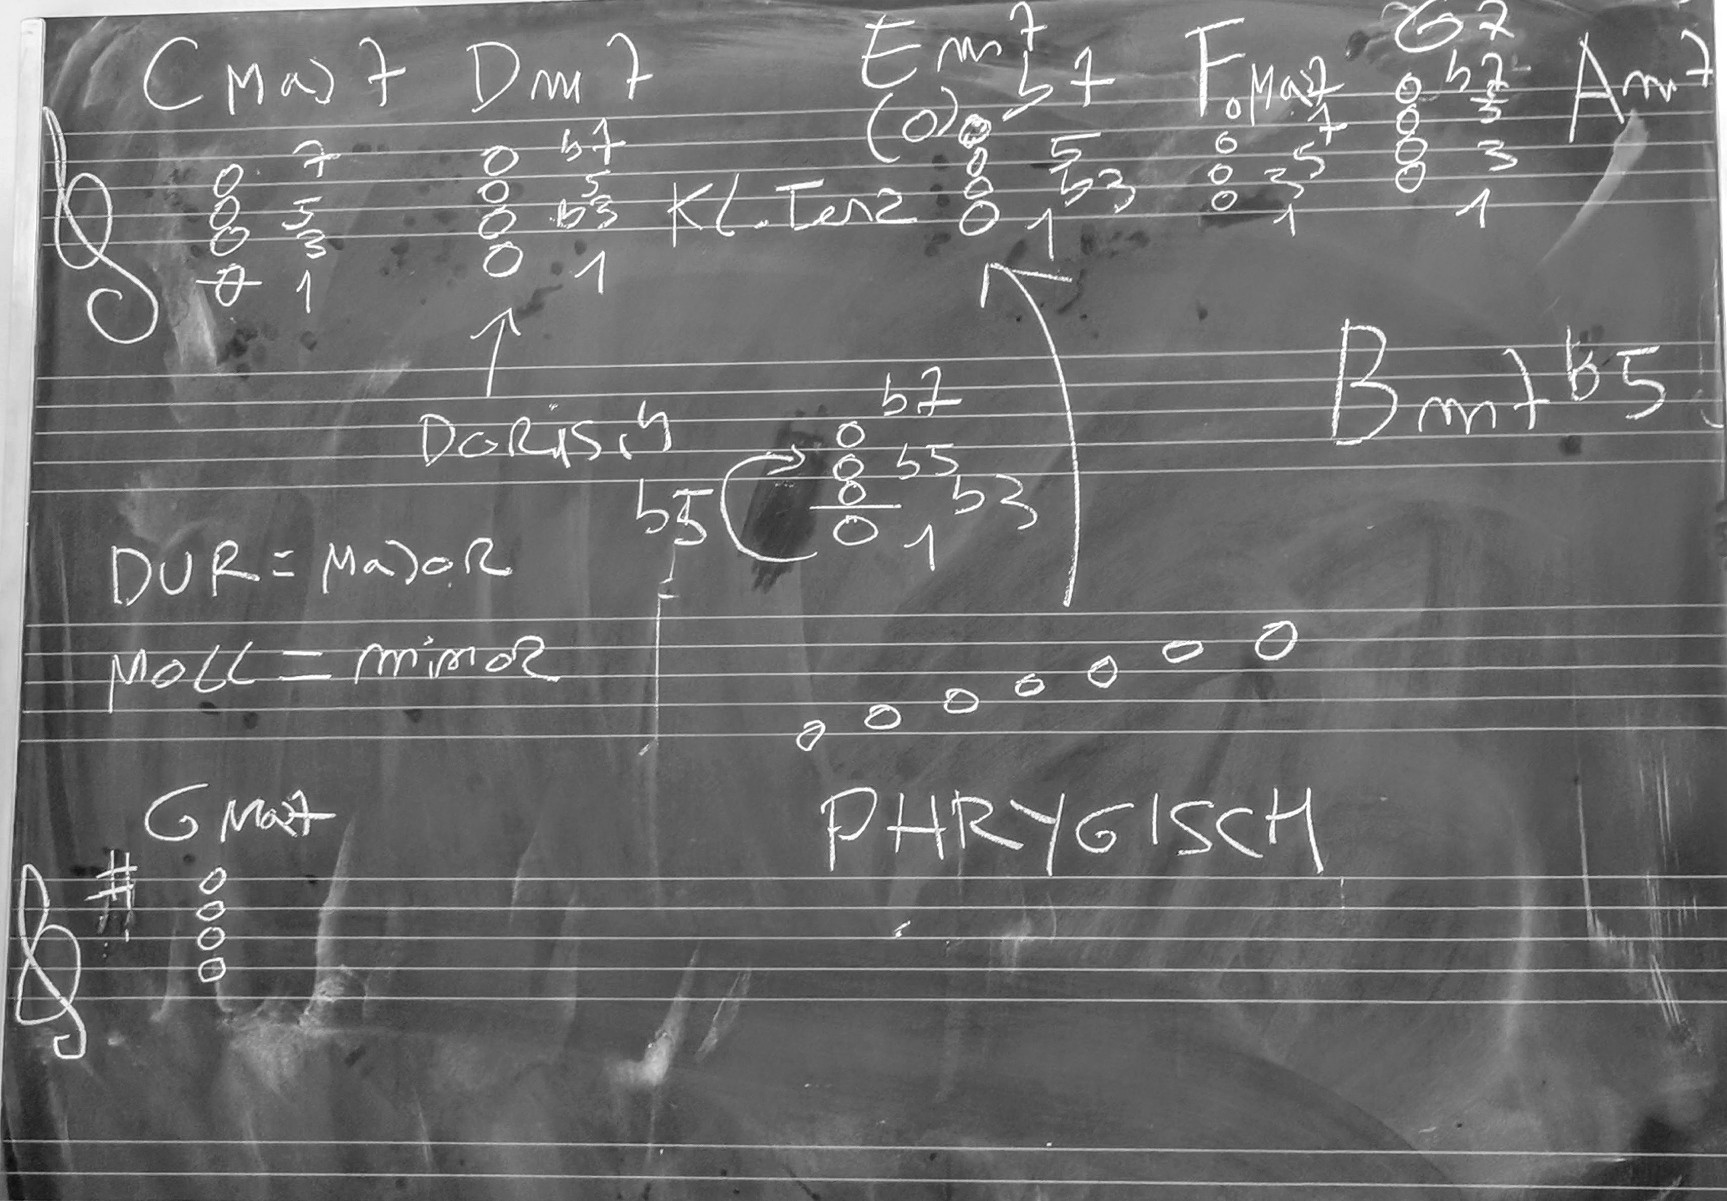 C Maj7 Dm7 Em7 FMaj7 G7 Am7
7 b7 b7 7 b7
5 5 5 5 5
3 b3 Kl. Terz b3 3 3
1 1 1 1 1
Bm7b5
DORISCH
b7
b5 b5
b3
1
DUR = MajOR
MOLL = minor
GMaj7
PHRYGISCH
#